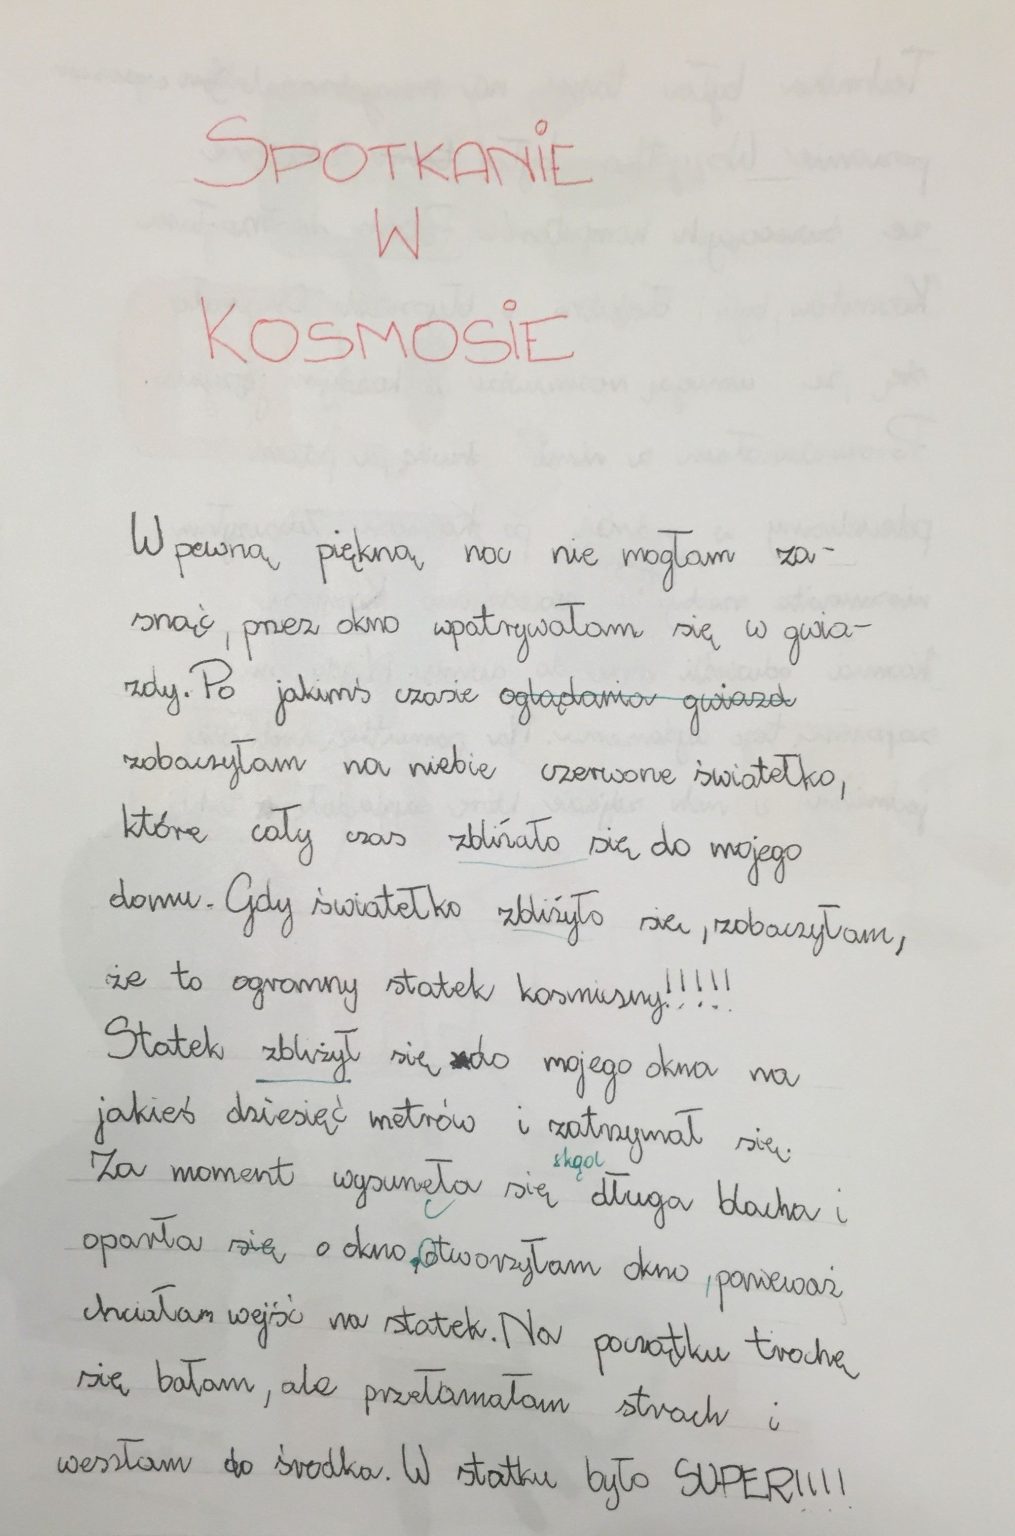 SPOTKANIE
W
KOSMOSIE
W pewną piękną noc nie mogłam za-
snąć, przez okno wpatrywałam się w gwia-
zdy. Po jakimś czasie oglądama gwiazd
zobaczyłam na niebie czerwone światełko,
które cały czas zbliżało się do mojego
domu. Gdy światełko zbliżyło się, zobaczyłam,
że to ogromny statek kosmiczny!!!!!
Statek zbliżył się do mojego okna na
jakieś dziesięć metrów i zatrzymał się.
skąd
Za moment wysunęła się długa blacha i
oparła się o okno. Otworzyłam okno, ponieważ
chciałam wejść na statek. Na początku trochę
się bałam, ale przełamałam strach i
weszłam do środka. W statku było SUPER!!!!